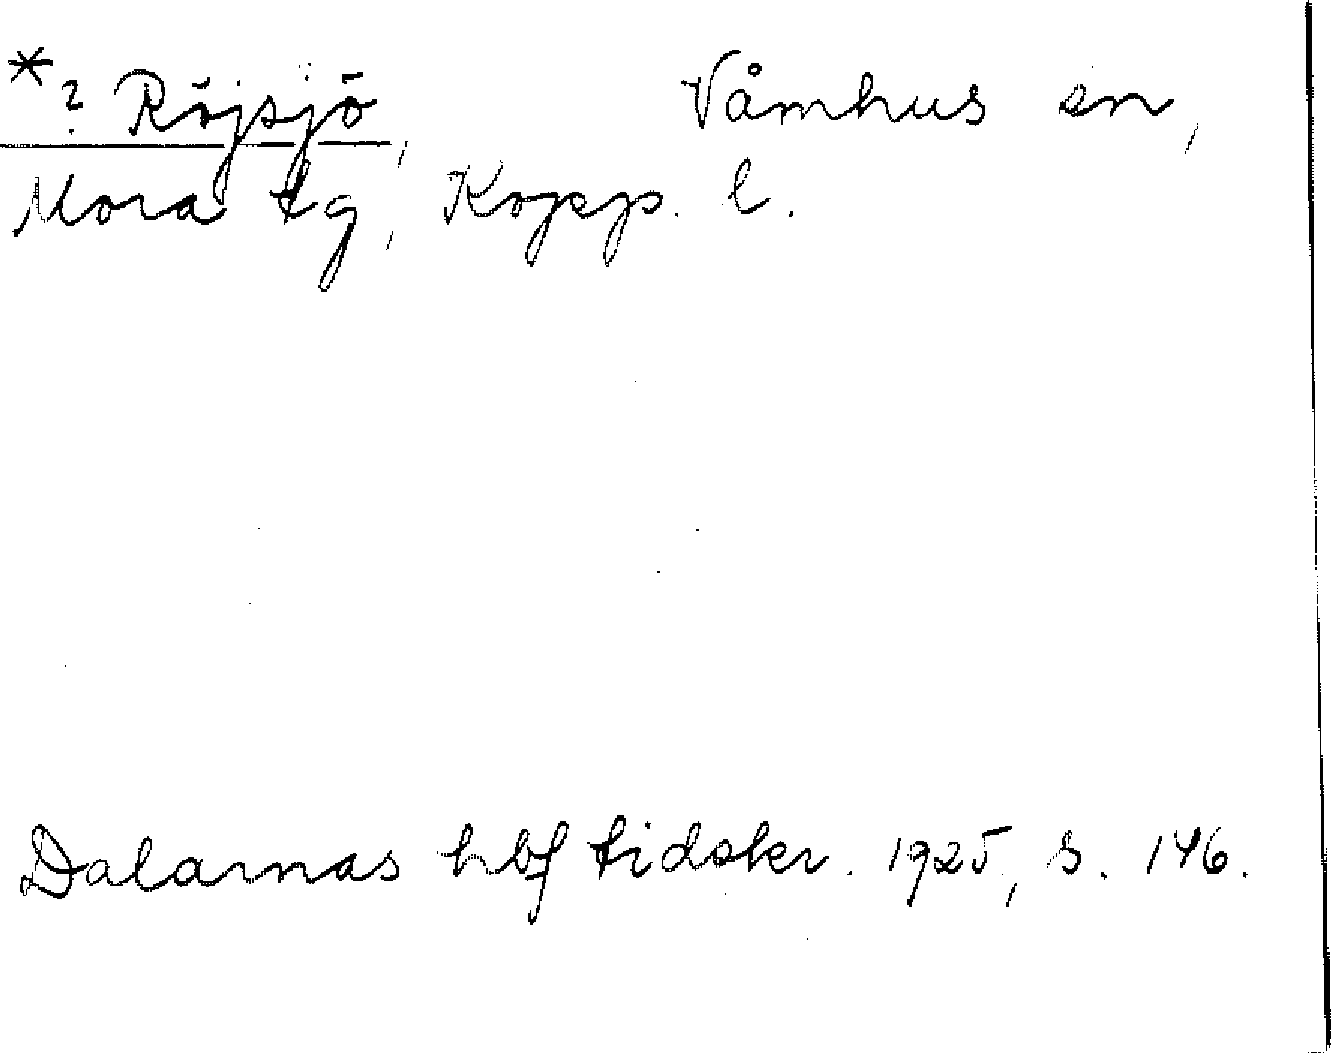 *? Röjsjö, Våmhus sn,
Mora tg, Kopp. l.
Dalarnas hbf tidskr. 1925, s. 146.